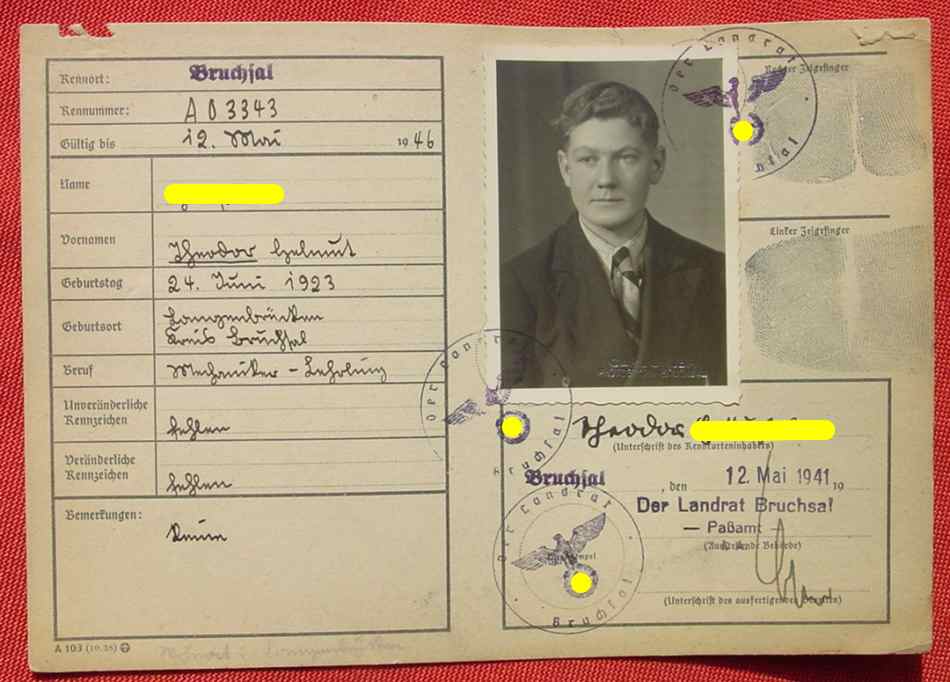 Kennort: Bruchsal
Kennummer: A 03343
Gültig bis 12. Mai 1946
Name
Vornamen Theodor Helmut
Geburtstag 24. Juni 1923
Geburtsort Langenbrücken
Kreis Bruchsal
Beruf Mechaniker - Lehrling
Unveränderliche
Kennzeichen fehlen
Veränderliche
Kennzeichen fehlen
Bemerkungen: Keine
A 103 (10.38)
Der Landrat
Rechter Zeigefinger
Linker Zeigefinger
Der Landrat
Bruchsal
Theodor
(Unterschrift des Kennkarteninhabers)
Bruchsal, den 12. Mai 1941 19
Der Landrat Bruchsal
— Paßamt —
(Ausstellende Behörde)
(Unterschrift des ausfertigenden Beamten)
Der Landrat
Bruchsal